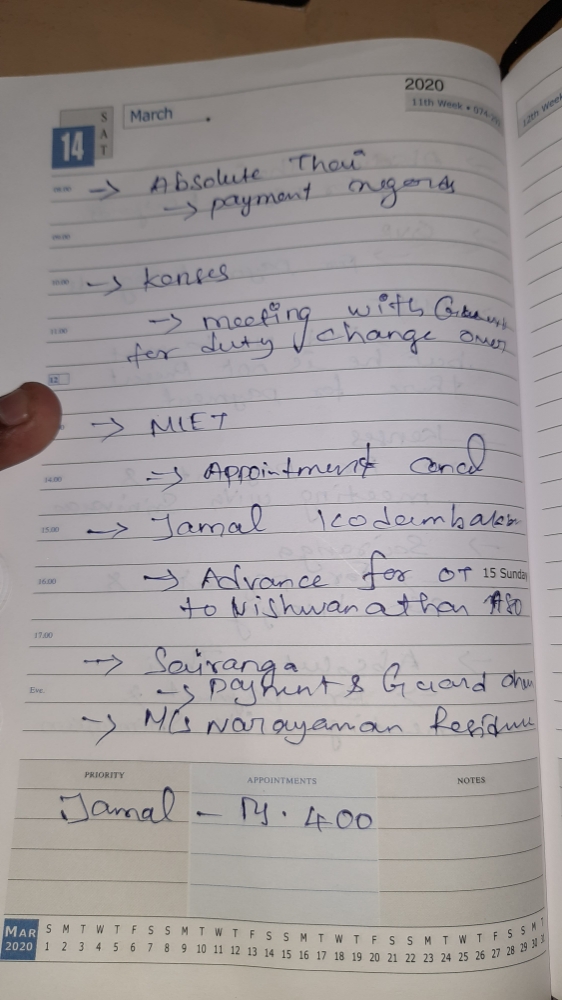 2020
11th Week • 074-
March
S
A
T
14
08.00
→ Absolute Thai
→ payment regards
09.00
10.00
→ Kanses
→ meeting with
11.00
for duty change over
12
→ MIET
→ Appointment
14.00
15.00
→ Jamal Kodambakk
→ Advance for OT
16.00
15 Sunday
to Vishwanathan ASO
17.00
→ Sairanga
Eve.
→ payment & Guard
→ M/s Narayanan
PRIORITY
APPOINTMENTS
NOTES
Jamal - Rs. 400
MAR
2020
S M T W T F S S M T W T F S S M T W T F S S M T W T F S S M T
1 2 3 4 5 6 7 8 9 10 11 12 13 14 15 16 17 18 19 20 21 22 23 24 25 26 27 28 29 30 31
12th Week